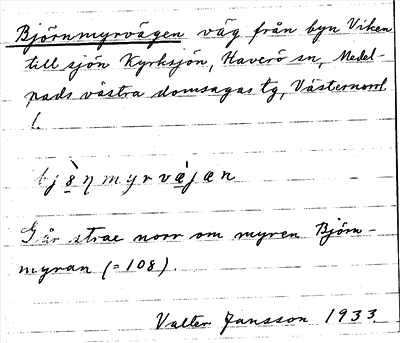 Björnmyrvägen väg från byn Viken
till sjön Kyrksjön, Haverö sn, Medel-
pads västra domsagas tg, Västernorrl.
l.
Går strax norr om myren Björn-
myran (= 108).
Valter Jansson 1933.